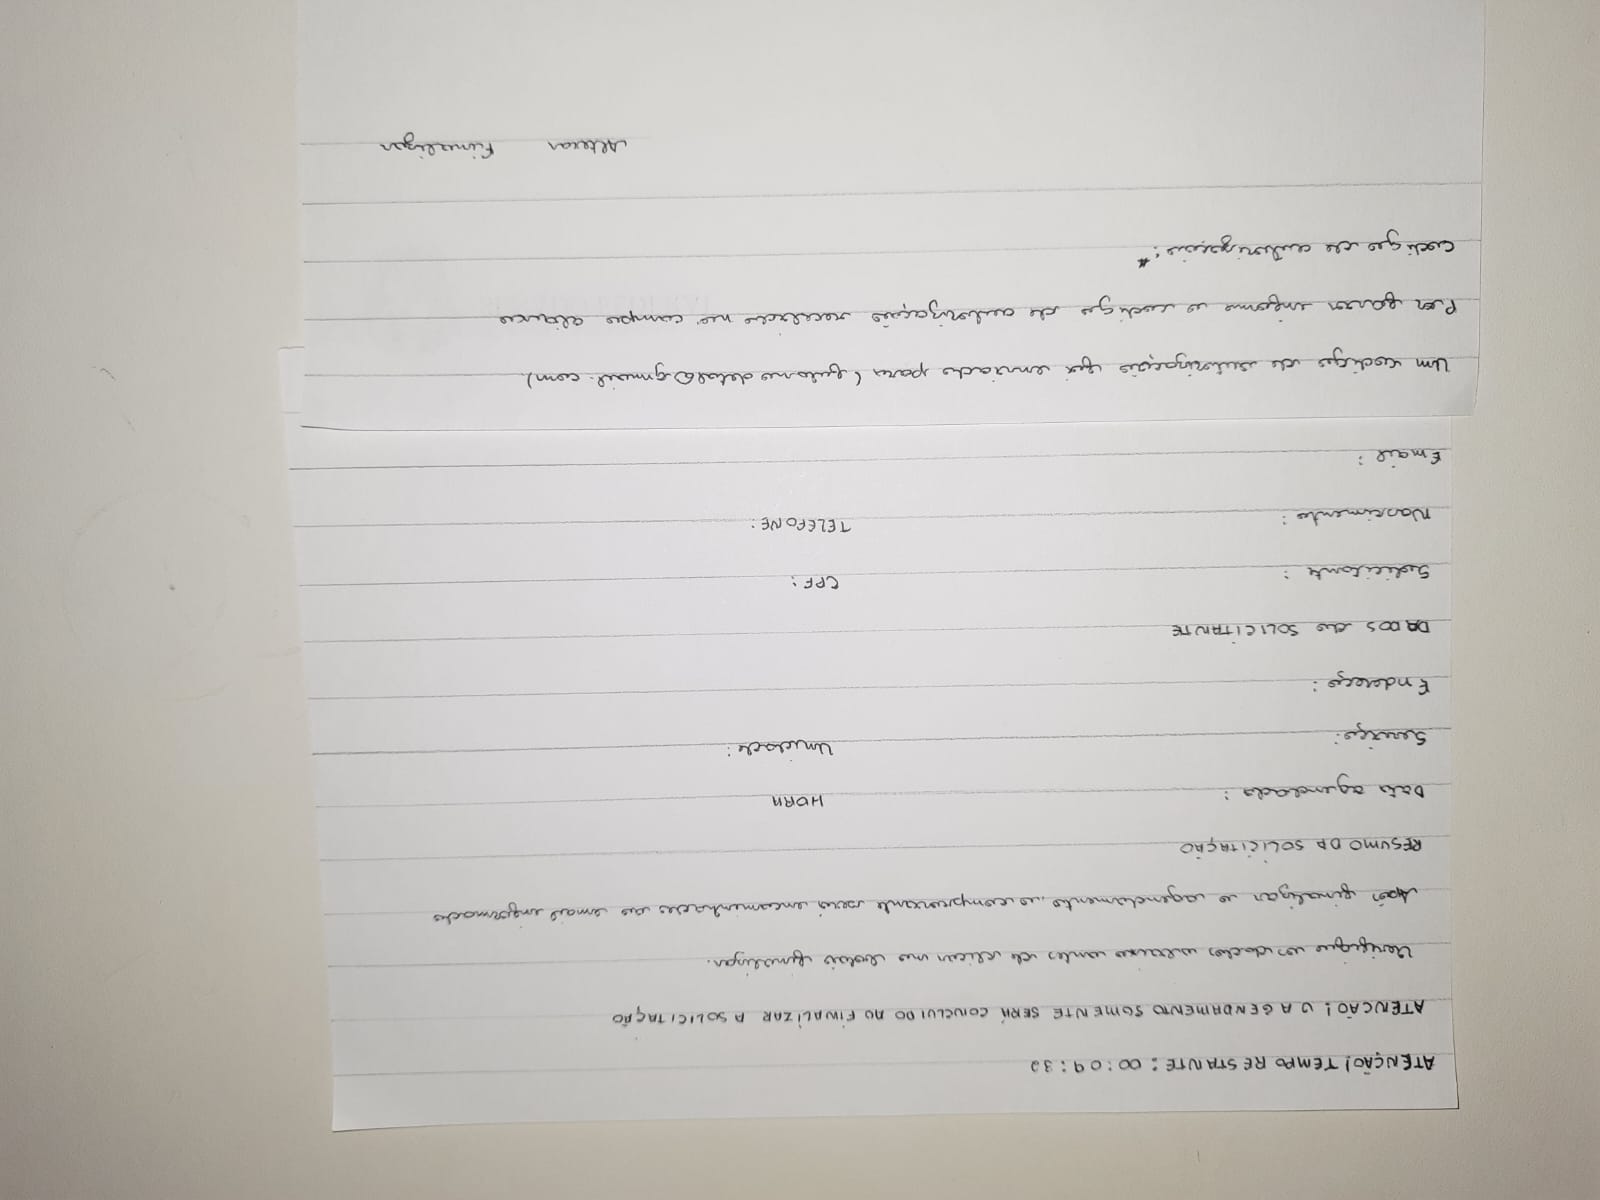 ATENÇÃO! TEMPO RESTANTE: 00:09:32
ATENCÃO! O AGENDAMENTO SOMENTE SERÁ CONCLUIDO AO FINALIZAR A SOLICITAÇÃO
Verifique os dados abaixo antes de clicar no botão finalizar.
Após finalizar o agendamento, o comprovante será encaminhado ao email informado
RESUMO DA SOLICITAÇÃO
Data agendada: HORA
Serviço: Unidade:
Endereço:
DADOS do SOLICITANTE
Solicitante: CPF:
Nascimento: TELEFONE:
Email:
Um codigo de autorização foi enviado para (fulano detal@gmail.com).
Por favor informe o codigo de autorização recebido no campo abaixo
codigo de autorização:*
Alterar Finalizar